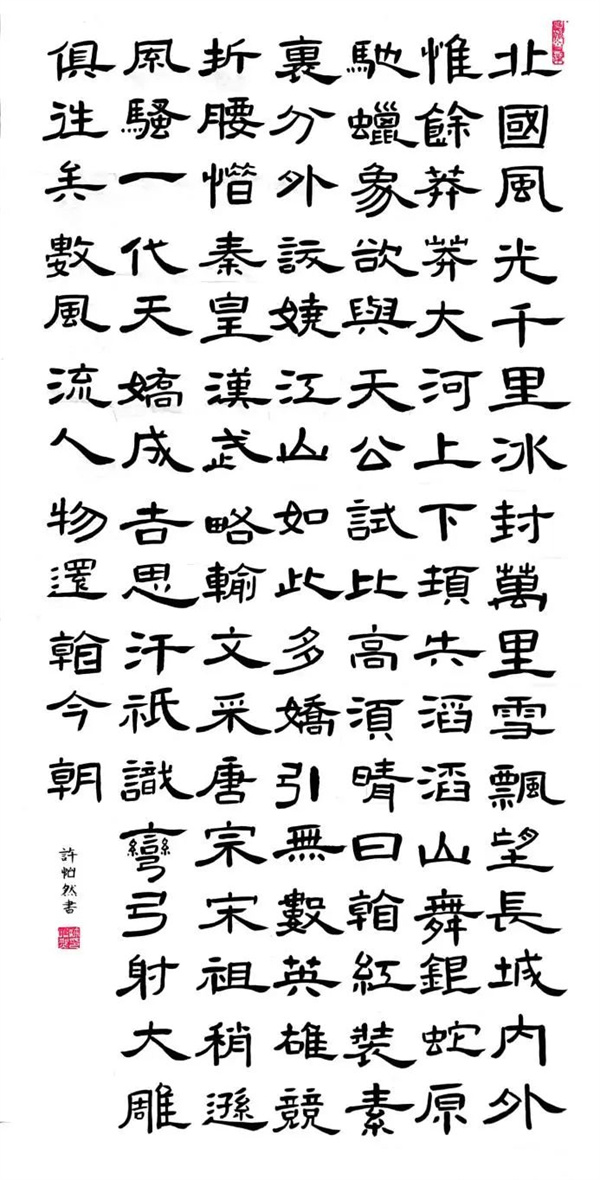 北國風光千里冰封萬里雪飄望長城内外
惟餘莽莽大河上下頓失滔滔山舞銀蛇原
馳蠟象欲與天公試比高須晴日看紅裝素
裏分外訞嬈江山如此多嬌引無數英雄競
折腰惜秦皇漢武略輸文采唐宗宋祖稍遜
風騷一代天嬌成吉思汗祇識彎弓射大雕
俱往矣數風流人物還看今朝
許怡然書